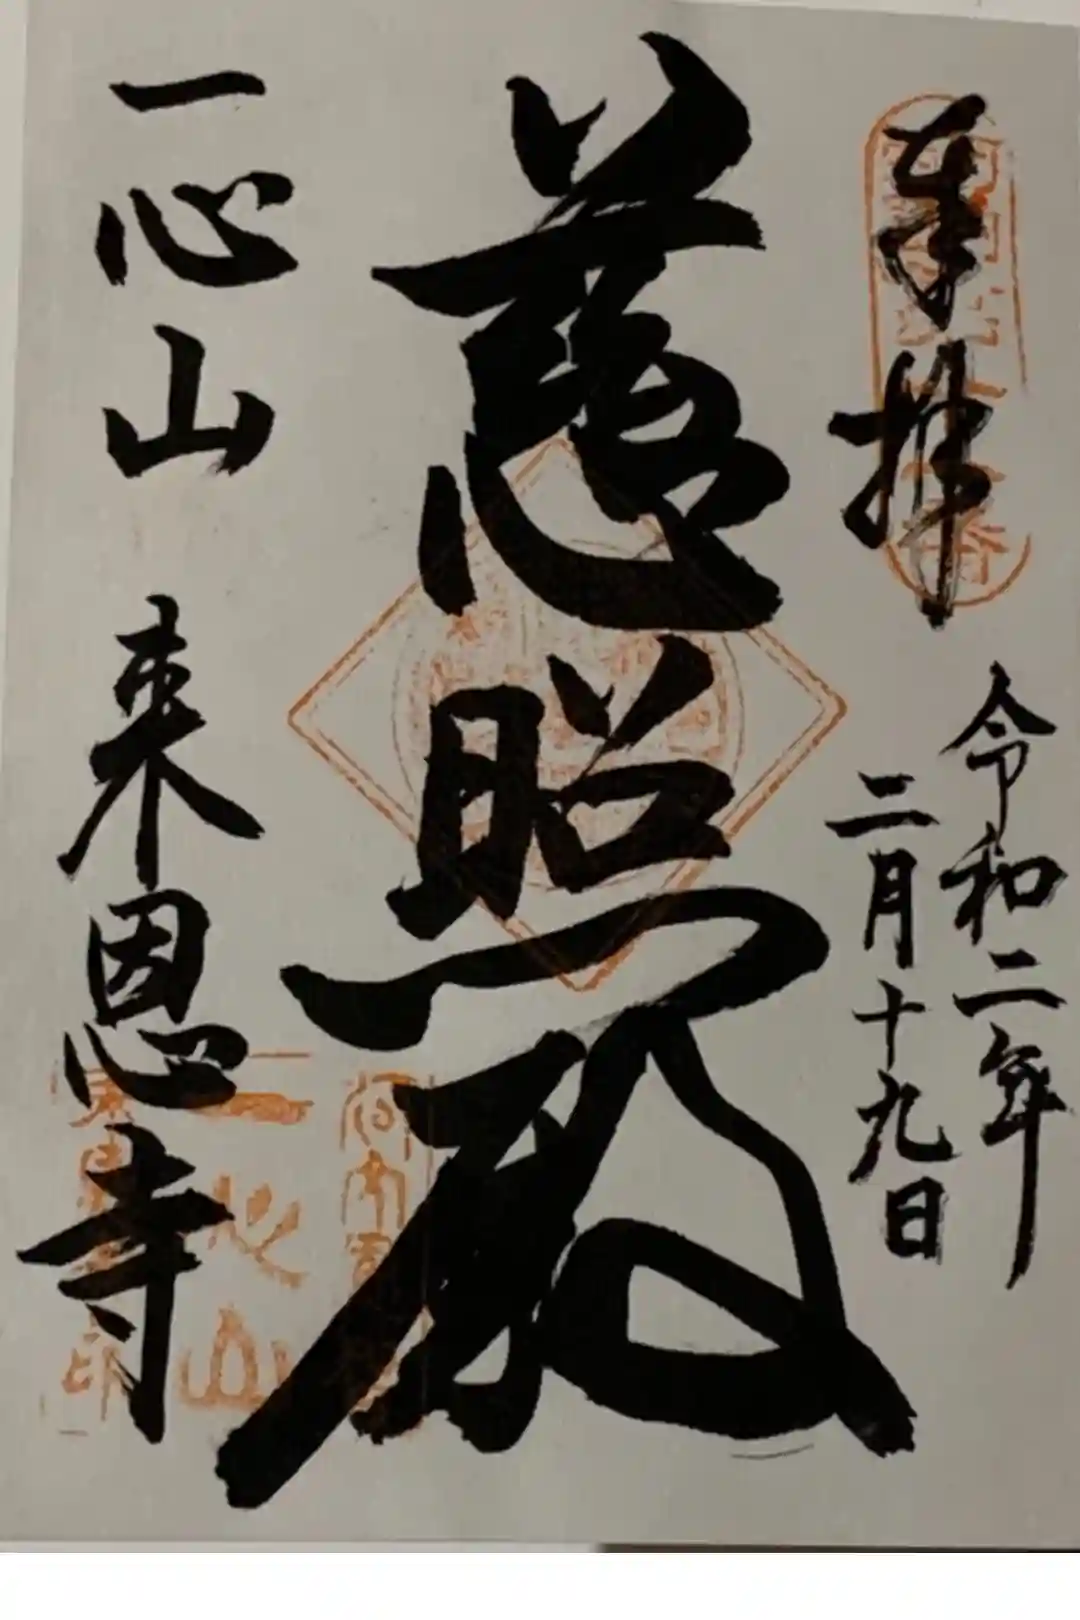 奉拝
令和二年
二月十九日
慈照殿
一心山 来恩寺
一心山